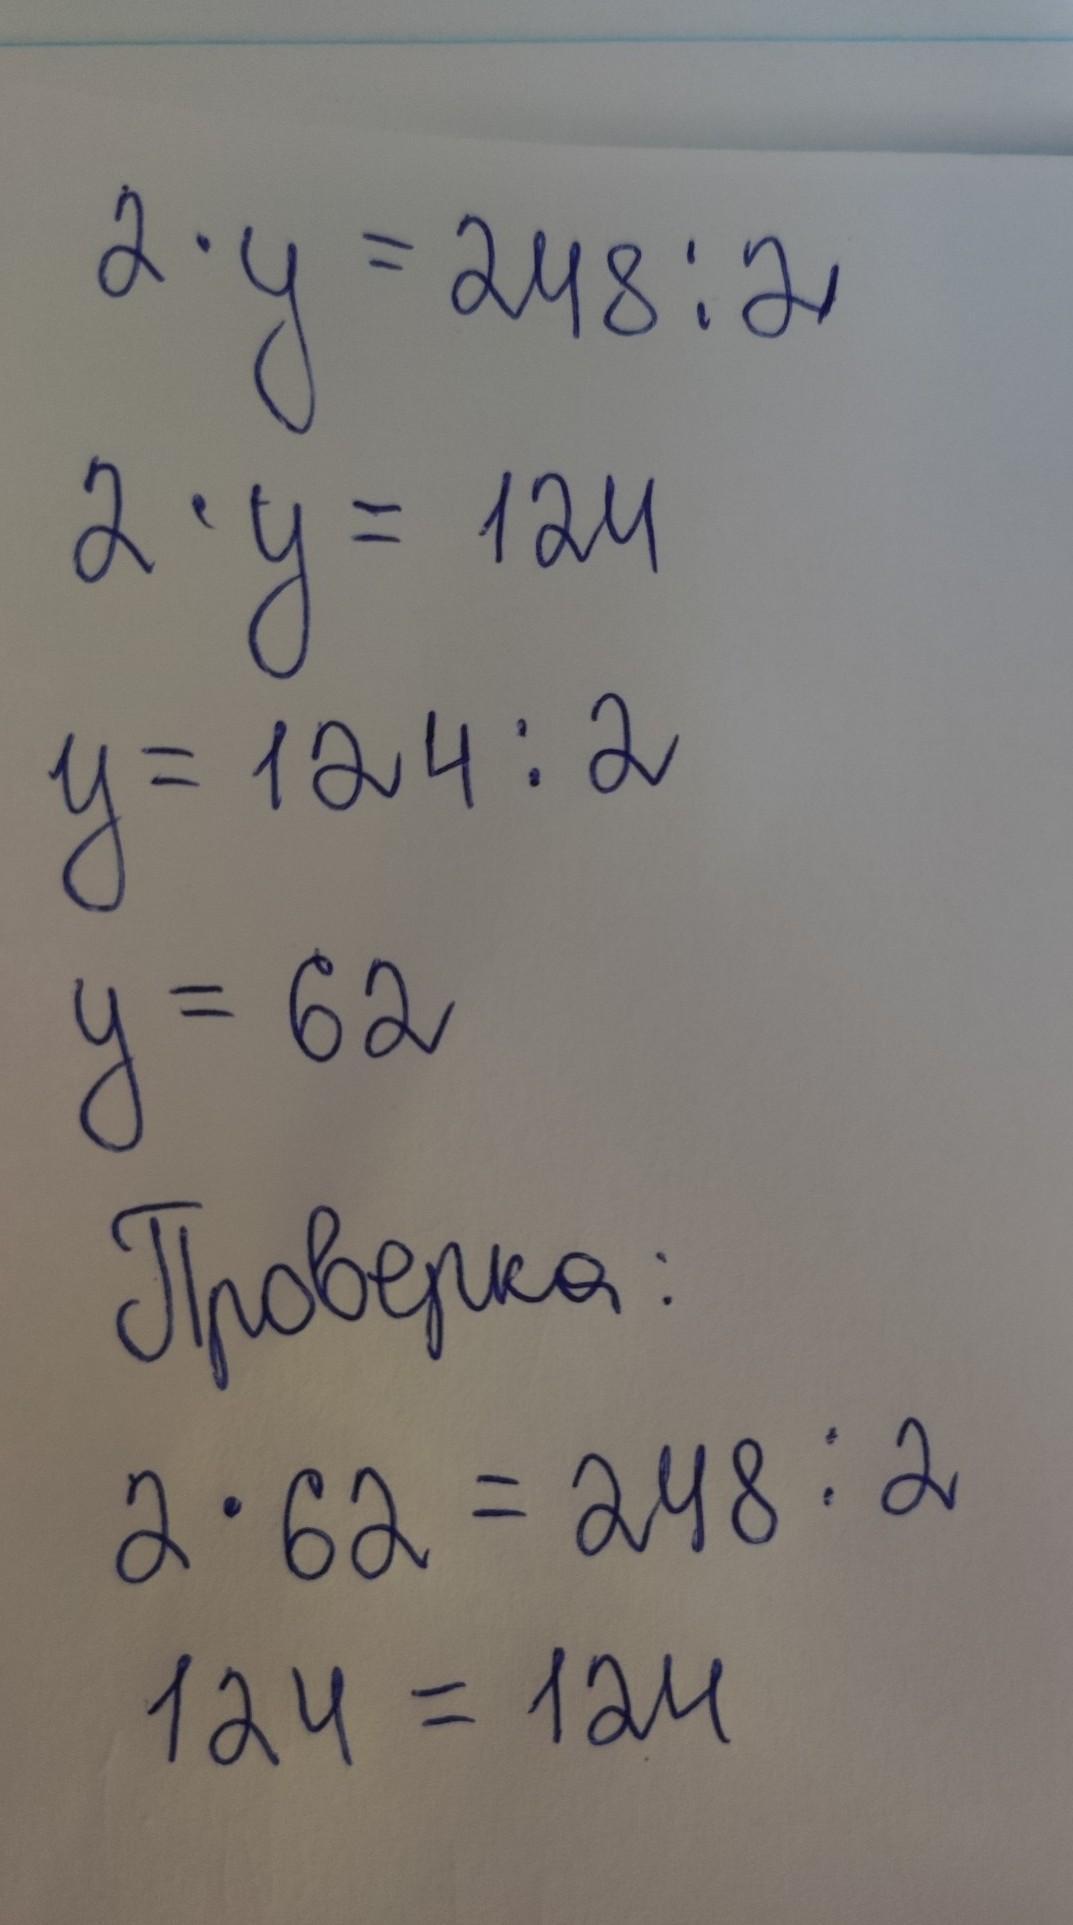 2 · y = 248 : 2
2 · y = 124
y = 124 : 2
y = 62
Проверка:
2 · 62 = 248 : 2
124 = 124